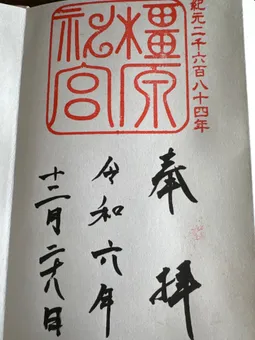 紀元二千六百八十四年
橿原神宮
奉拝
令和六年
十二月二十八日